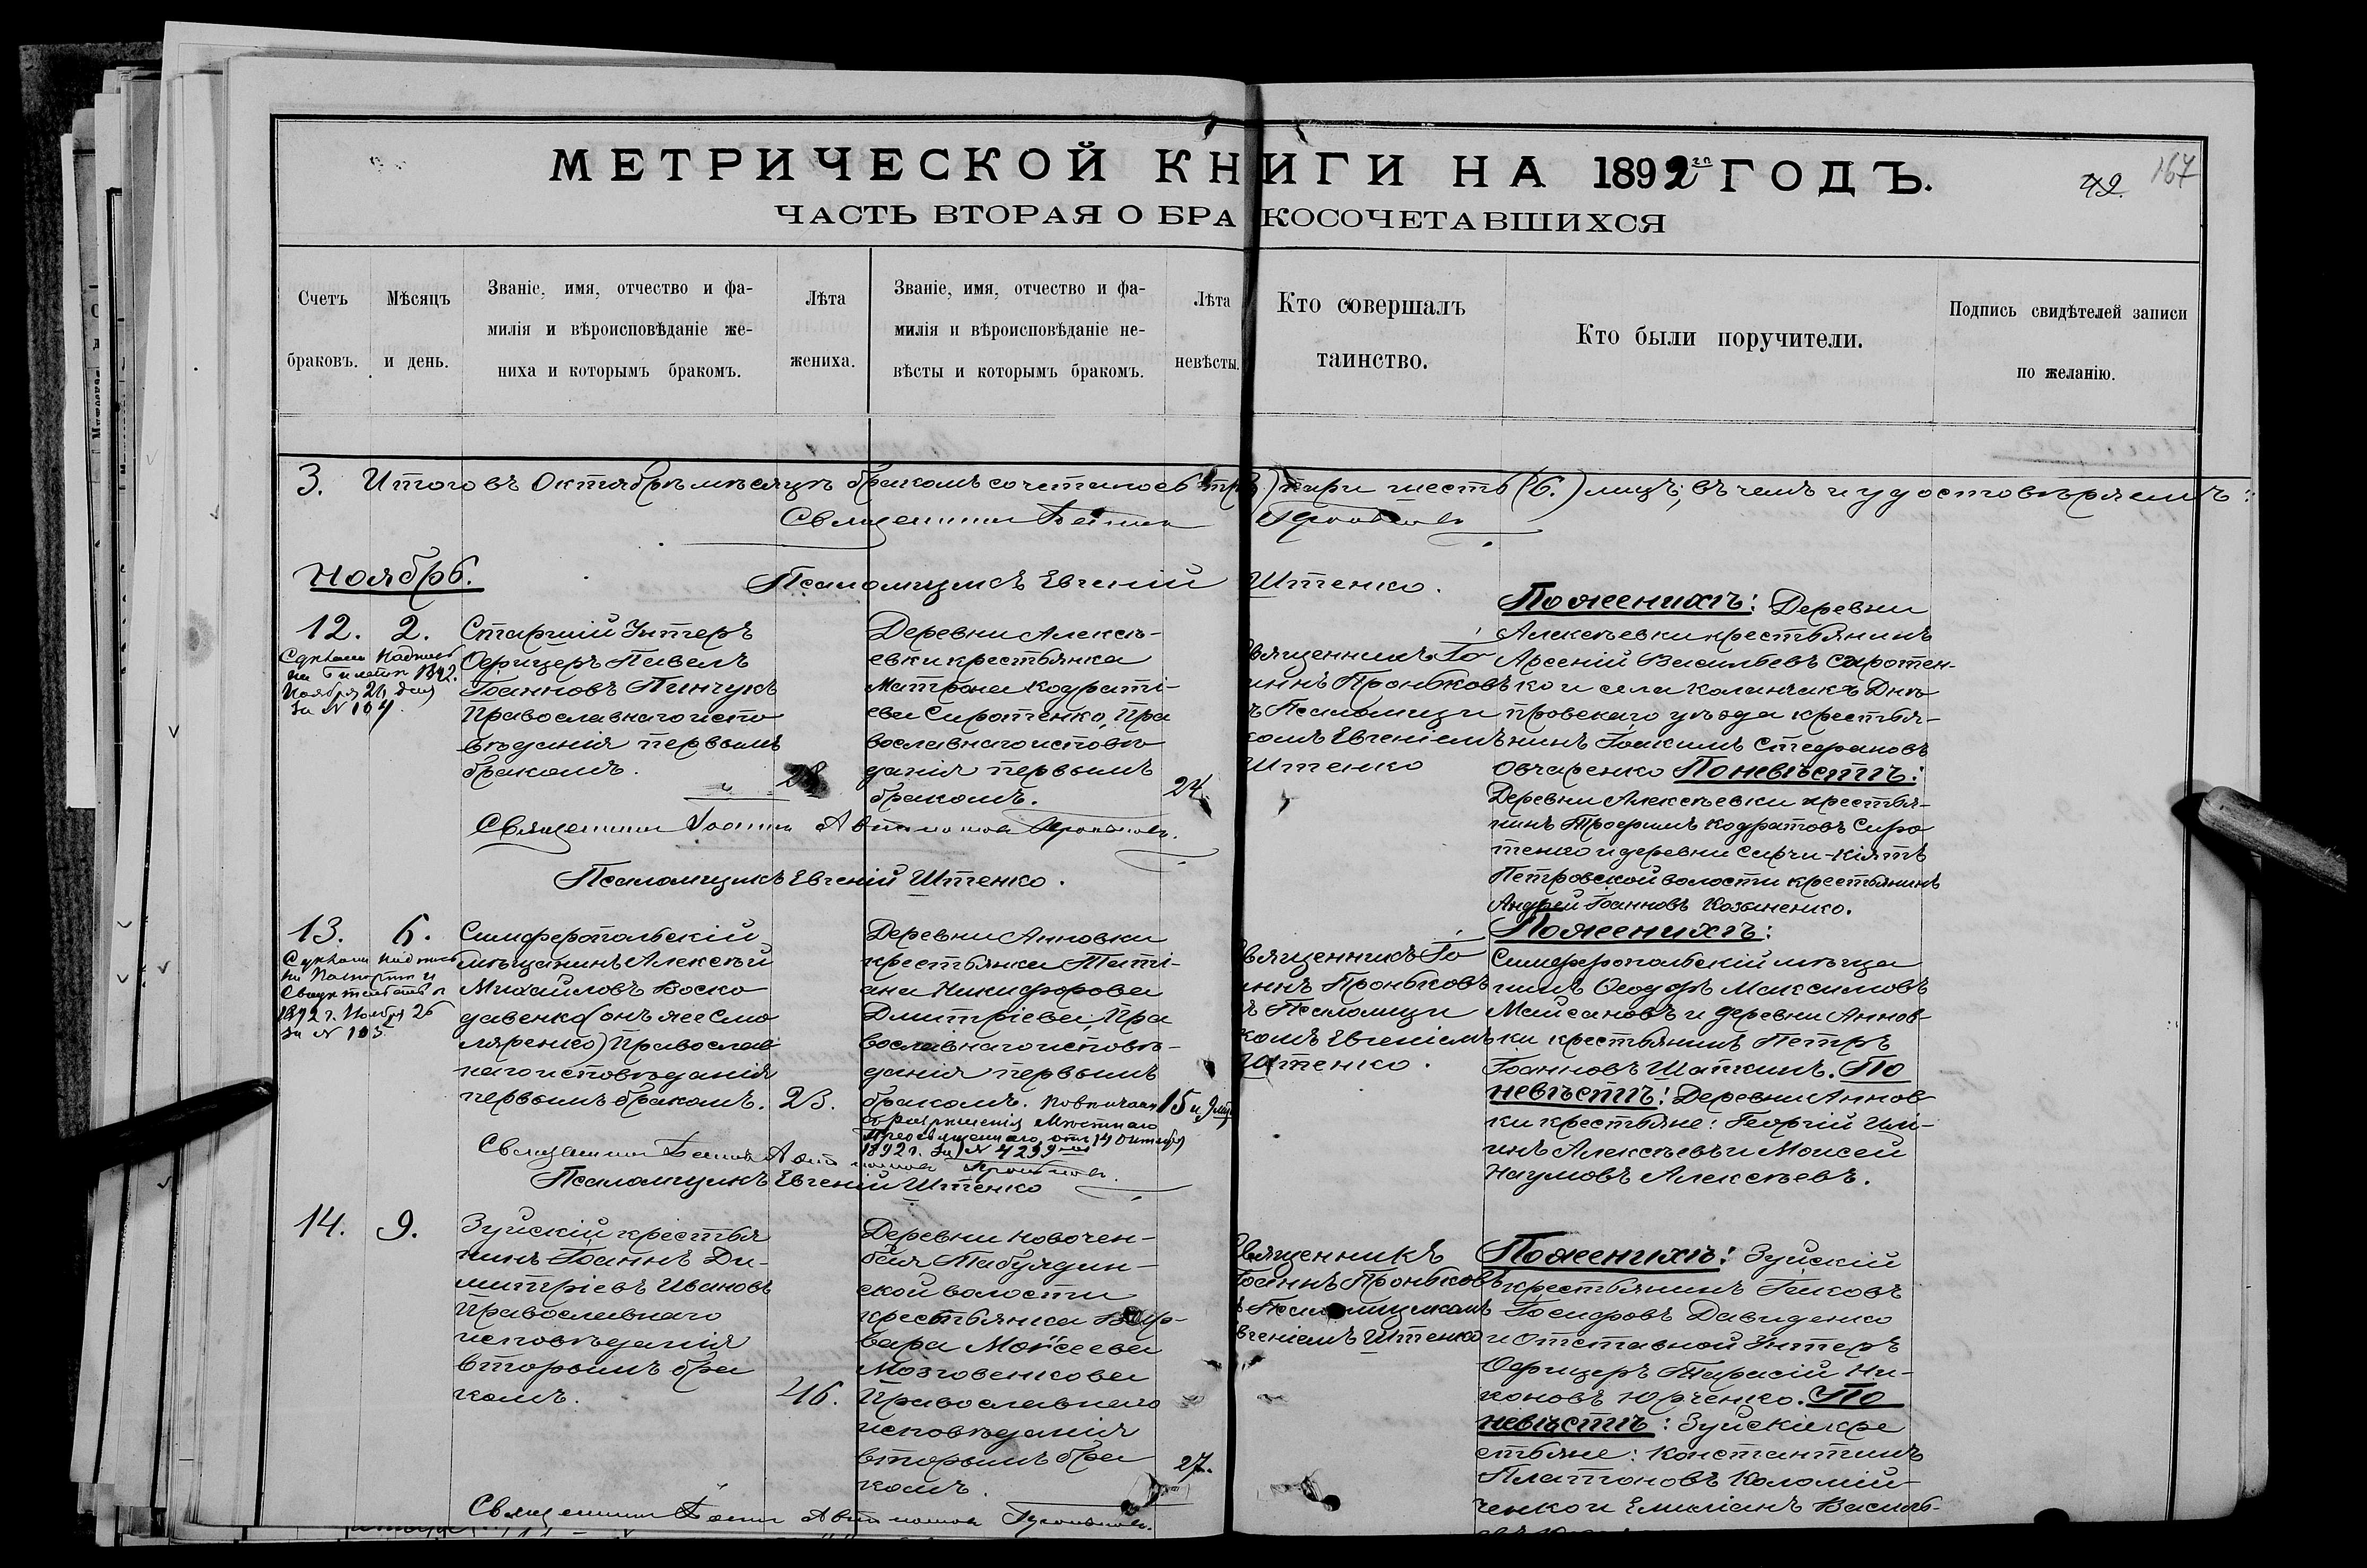 МЕТРИЧЕСКОЙ КНИГИ НА 1892го ГОДЪ.
42.
167
ЧАСТЬ ВТОРАЯ О БРАКОСОЧЕТАВШИХСЯ
Счетъ браковъ.
Мѣсяцъ и день.
Званіе, имя, отчество и фа-
милія и вѣроисповѣданіе же-
ниха и которымъ бракомъ.
Лѣта жениха.
Званіе, имя, отчество и фа-
милія и вѣроисповѣданіе не-
вѣсты и которымъ бракомъ.
Лѣта невѣсты.
Кто совершалъ
таинство.
Кто были поручители.
Подпись свидѣтелей записи
по желанію.
3. Итого въ Октябрѣ мѣсяцѣ бракомъ сочеталось три) пари шесть (6.) лицъ; въ чемъ и удостовѣряемъ:
Священникъ Іоаннъ Проньковъ
Ноябрь.
Псаломщикъ Евгеній Штенко.
12.
2.
Сдѣлана надпись
на билетѣ 1892.
Ноября 24 дня
за № 104.
Старшій Унтеръ
Офицеръ Павелъ
Іоанновъ Пинчукъ
Православнаго испо
вѣданія первымъ
бракомъ.
28
Деревни Алексѣ-
евки крестьянка
Матрона Кодраті-
ева Сиротенко, Пра
вославнаго исповѣ
данія первымъ
бракомъ.
24
вященникъ Іо
аннъ Проньковъ
ъ Псаломщи
комъ Евгеніемъ
Штенко
По женихѣ: Деревни
Алексѣевки крестьянинъ
Арсеній Васильевъ Сиротен-
ко и села Каланчакъ Днѣ
провскаго уѣзда крестья-
нинъ Іоакимъ Стефановъ
Овчаренко По невѣстѣ:
Деревни Алексѣевки крестья-
нинъ Трофимъ Кодратовъ Сиро
тенко и деревни Сарчи-Кіятъ
Петровской волости крестьянинъ
Андрей Іоанновъ Козыненко.
Священникъ Іоаннъ Автономовъ Проньковъ.
Псаломщикъ Евгеній Штенко.
13.
6.
Сдѣлана надпись
на паспортѣ и
1892 г. Ноября 26
за № 105
Симферопольскій
мѣщанинъ Алексѣй
Михайловъ Воско
давенко (онъ же Смо
ляренко) Православ
наго исповѣданія
первымъ бракомъ.
23.
Деревни Анновки
крестьянка Таті-
ана Никифорова
Дмитріева, Пра
вославнаго исповѣ-
данія первымъ
бракомъ. Повѣнчаны
съ разрѣшенія Мѣстнаго
Преосвященнаго отъ 14 Октября
1892 г. за № 4239
15 и 9 мѣс
вященникъ Іо
аннъ Проньковъ
ъ Псаломщи
комъ Евгеніемъ
Штенко.
По женихѣ:
Симферопольскій мѣща
нинъ Ѳеодоръ Максимовъ
Майсановъ и деревни Аннов-
ки крестьянинъ Петръ
Іоанновъ Шапкинъ. По
невѣстѣ: Деревни Аннов
ки крестьяне: Георгій Иль-
инъ Алексѣевъ и Моисей
Наумовъ Алексѣевъ.
Священникъ Іоаннъ Автономовъ Проньковъ.
Псаломщикъ Евгеній Штенко
14.
9.
Зуйскій крестья
нинъ Іоаннъ Ди-
митріевъ Ивановъ
Православнаго
исповѣданія
вторымъ бра
комъ.
46.
Деревни Новочен-
бая Табулдин-
ской волости
крестьянка Вар-
вара Моисеева
Мозговенкова
Православнаго
исповѣданія
вторымъ бра
комъ.
27.
Священникъ
Іоаннъ Проньковъ
Псаломщикомъ
вгеніемъ Штенко
По женихѣ: Зуйскій
крестьянинъ Іаковъ
Іосифовъ Давиденко
и отставной Унтеръ
Офицеръ Тарасій Ни-
коновъ Юрченко. По
невѣстѣ: Зуйскіе кре
стьяне: Константинъ
Платоновъ Коломій-
ченко и Емиліанъ Василь-
Священникъ Іоаннъ Автономовъ Проньковъ.